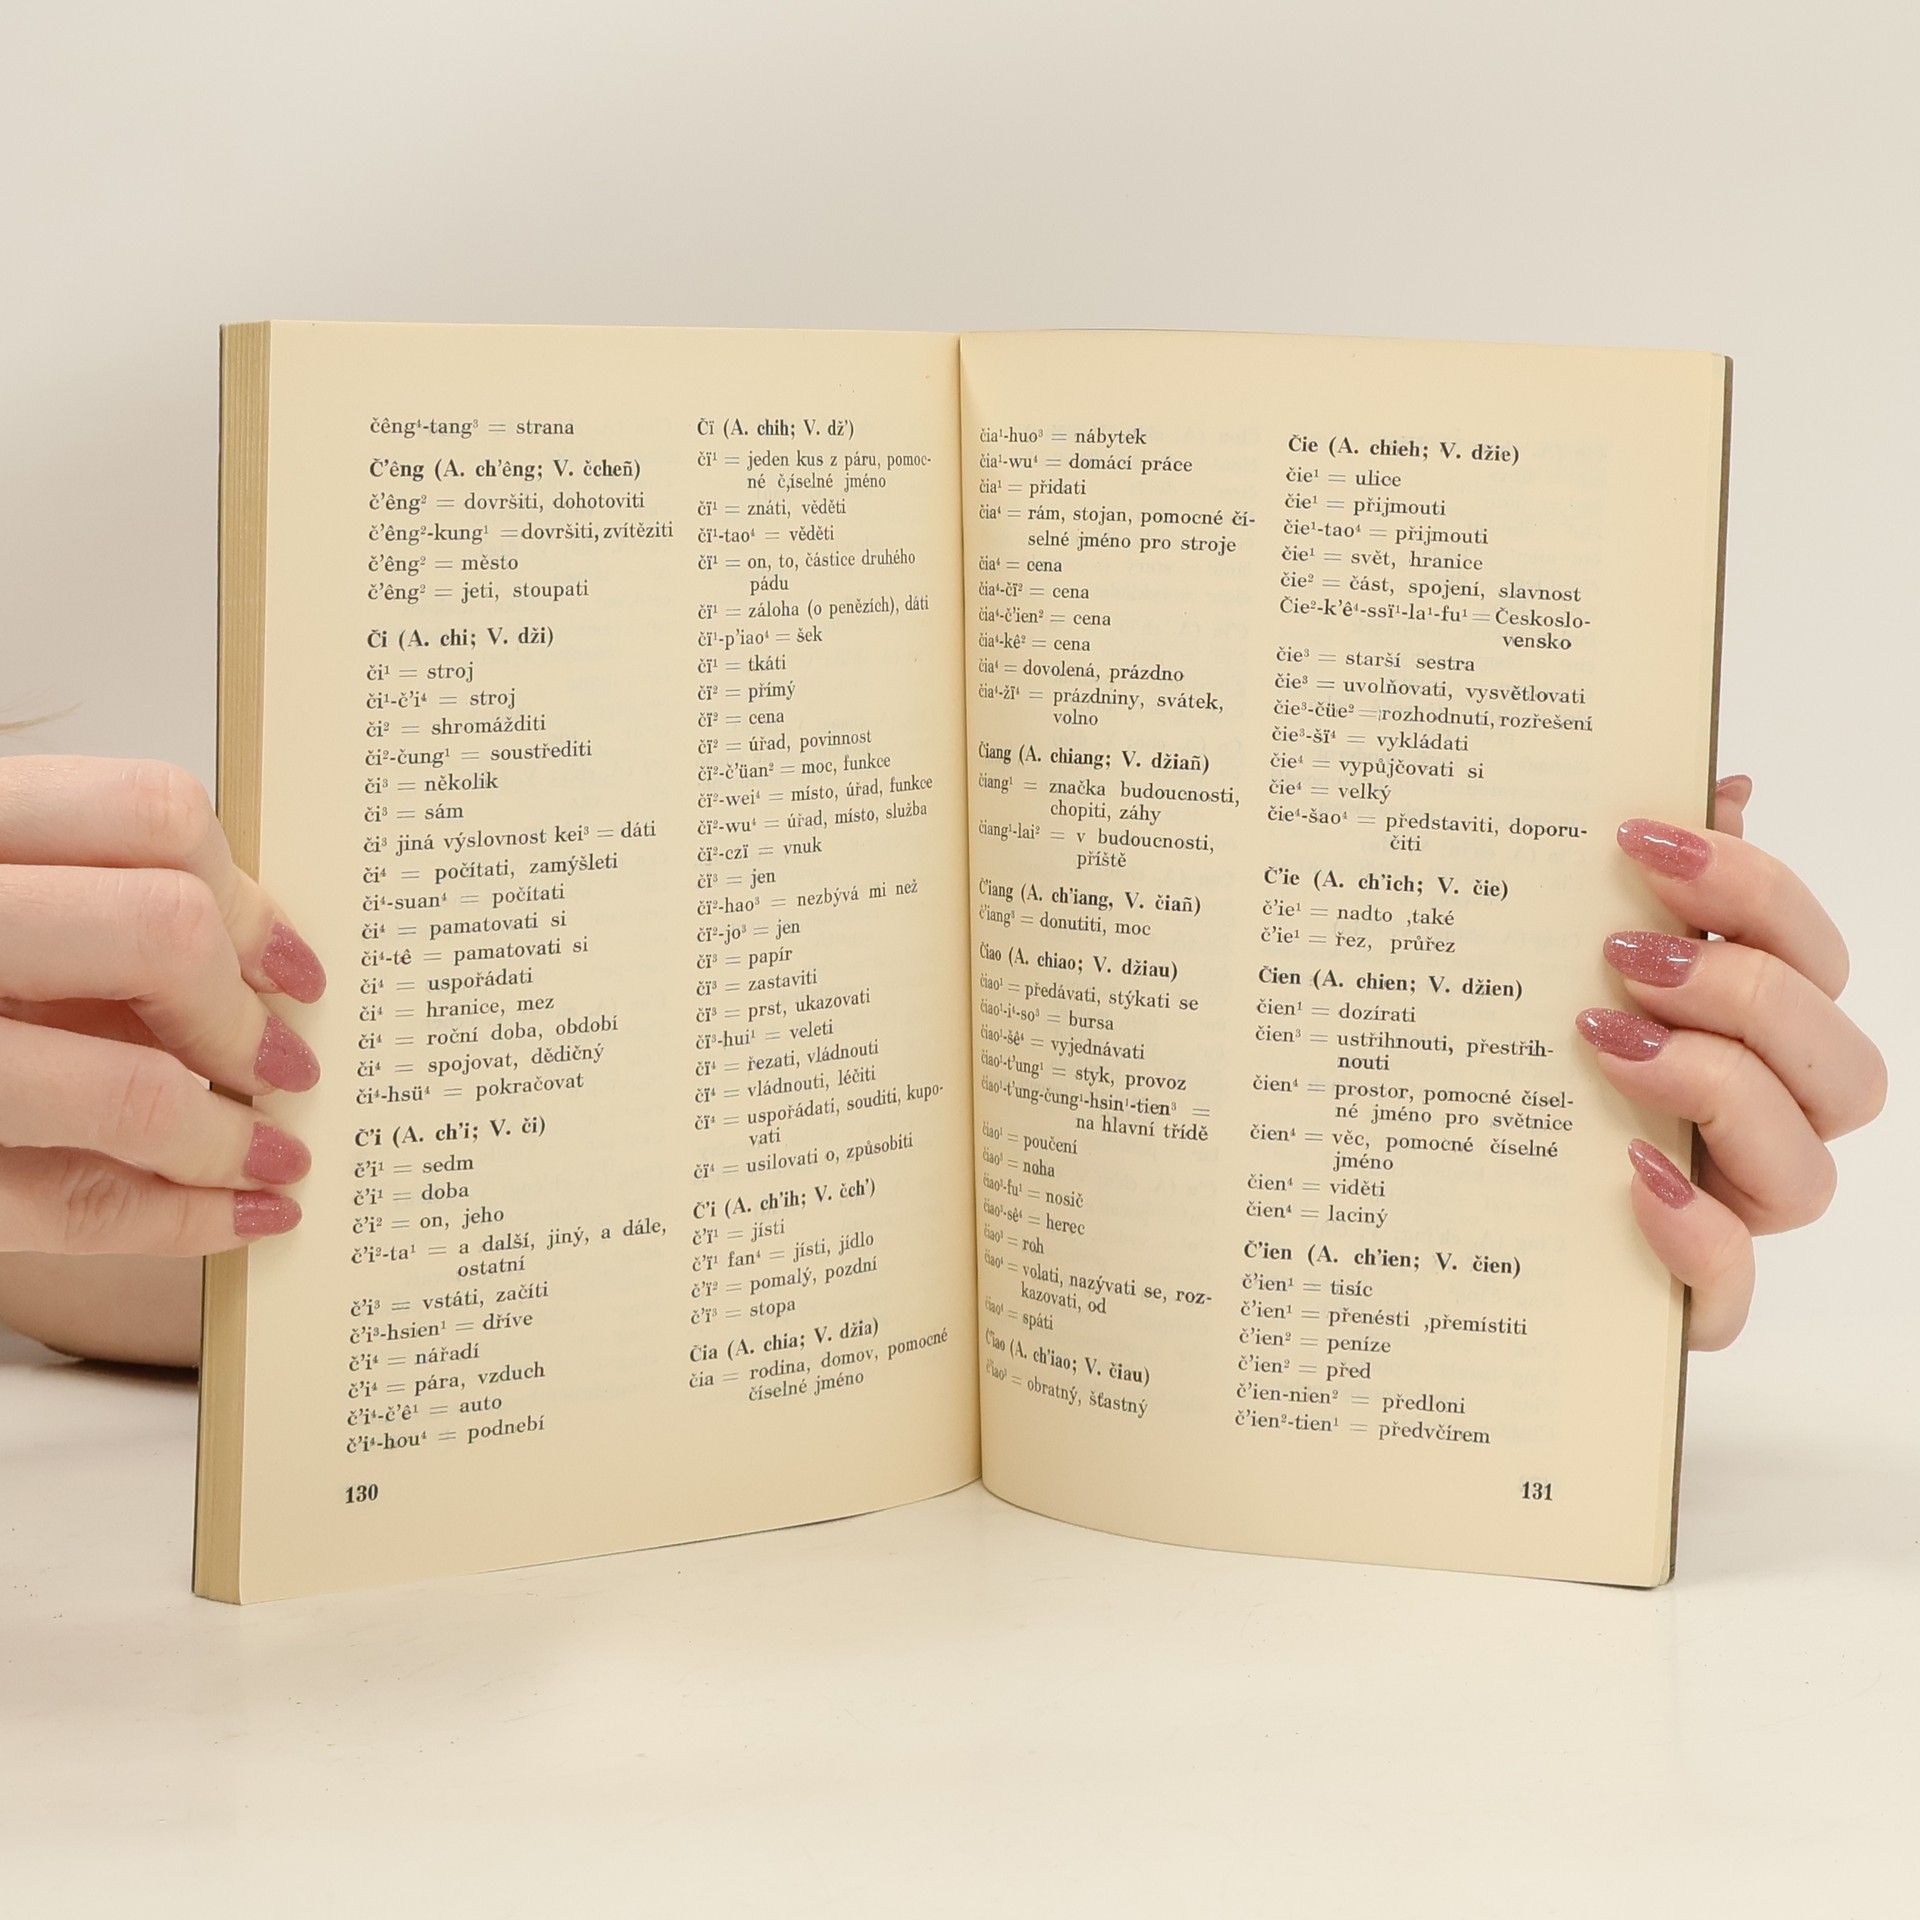 čêng⁴-tang³ = strana
Č’êng (A. ch’êng; V. čcheñ)
č’êng² = dovršiti, dohotoviti
č’êng²-kung¹ =dovršiti, zvítěziti
č’êng² = město
č’êng² = jeti, stoupati
Či (A. chi; V. dži)
či¹ = stroj
či¹-č’i⁴ = stroj
či² = shromážditi
či²-čung¹ = soustřediti
či³ = několik
či³ = sám
či³ jiná výslovnost kei³ = dáti
či⁴ = počítati, zamýšleti
či⁴-suan⁴ = počítati
či⁴ = pamatovati si
či⁴-tê = pamatovati si
či⁴ = uspořádati
či⁴ = hranice, mez
či⁴ = roční doba, období
či⁴ = spojovat, dědičný
či⁴-hsü⁴ = pokračovat
Č’i (A. ch’i; V. či)
č’i¹ = sedm
č’i¹ = doba
č’i² = on, jeho
č’i²-ta¹ = a další, jiný, a dále,
ostatní
č’i³ = vstáti, začíti
č’i³-hsien¹ = dříve
č’i⁴ = nářadí
č’i⁴ = pára, vzduch
č’i⁴-č’ê¹ = auto
č’i⁴-hou⁴ = podnebí
130
Čï (A. chih; V. dž’)
čï¹ = jeden kus z páru, pomoc-
né č,íselné jméno
čï¹ = znáti, věděti
čï¹-tao⁴ = věděti
čï¹ = on, to, částice druhého
pádu
čï¹ = záloha (o penězích), dáti
čï¹-p’iao⁴ = šek
čï¹ = tkáti
čï² = přímý
čï² = cena
čï² = úřad, povinnost
čï²-č’üan² = moc, funkce
čï²-wei⁴ = místo, úřad, funkce
čï²-wu⁴ = úřad, místo, služba
čï²-czï = vnuk
čï³ = jen
čï²-hao³ = nezbývá mi než
čï²-jo³ = jen
čï³ = papír
čï³ = zastaviti
čï³ = prst, ukazovati
čï³-hui¹ = veleti
čï⁴ = řezati, vládnouti
čï⁴ = vládnouti, léčiti
čï⁴ = uspořádati, souditi, kupo-
vati
čï⁴ = usilovati o, způsobiti
Č’i (A. ch’ih; V. čch’)
č’ï¹ = jísti
č’ï¹ fan⁴ = jísti, jídlo
č’ï² = pomalý, pozdní
č’ï³ = stopa
Čia (A. chia; V. džia)
čia = rodina, domov, pomocné
číselné jméno
čia¹-huo³ = nábytek
čia¹-wu⁴ = domácí práce
čia¹ = přidati
čia⁴ = rám, stojan, pomocné čí-
selné jméno pro stroje
čia⁴ = cena
čia⁴-čï² = cena
čia⁴-č’ien² = cena
čia⁴-kê² = cena
čia⁴ = dovolená, prázdno
čia⁴-žï⁴ = prázdniny, svátek,
volno
Čiang (A. chiang; V. džiañ)
čiang¹ = značka budoucnosti,
chopiti, záhy
čiang¹-lai² = v budoucnosti,
příště
Č’iang (A. ch’iang, V. čiañ)
č’iang³ = donutiti, moc
Čiao (A. chiao; V. džiau)
čiao¹ = předávati, stýkati se
čiao¹-i⁴-so³ = bursa
čiao¹-šê⁴ = vyjednávati
čiao¹-t’ung¹ = styk, provoz
čiao¹-t’ung-čung¹-hsin¹-tien³ =
na hlavní třídě
čiao¹ = poučení
čiao¹ = noha
čiao³-fu¹ = nosič
čiao³-sê⁴ = herec
čiao³ = roh
čiao⁴ = volati, nazývati se, roz-
kazovati, od
čiao⁴ = spáti
Č’iao (A. ch’iao; V. čiau)
č’iao³ = obratný, šťastný
Čie (A. chieh; V. džie)
čie¹ = ulice
čie¹ = přijmouti
čie¹-tao⁴ = přijmouti
čie¹ = svět, hranice
čie² = část, spojení, slavnost
Čie²-k’ê⁴-ssï¹-la¹-fu¹ = Českoslo-
vensko
čie³ = starší sestra
čie³ = uvolňovati, vysvětlovati
čie³-čüe² = rozhodnutí, rozřešení
čie³-šï⁴ = vykládati
čie⁴ = vypůjčovati si
čie⁴ = velký
čie⁴-šao⁴ = představiti, doporu-
čiti
Č’ie (A. ch’ich; V. čie)
č’ie¹ = nadto ,také
č’ie¹ = řez, průřez
Čien (A. chien; V. džien)
čien¹ = dozírati
čien³ = ustřihnouti, přestřih-
nouti
čien⁴ = prostor, pomocné čísel-
né jméno pro světnice
čien⁴ = věc, pomocné číselné
jméno
čien⁴ = viděti
čien⁴ = laciný
Č’ien (A. ch’ien; V. čien)
č’ien¹ = tisíc
č’ien¹ = přenésti ,přemístiti
č’ien² = peníze
č’ien² = před
č’ien-nien² = předloni
č’ien²-tien¹ = předvčírem
131